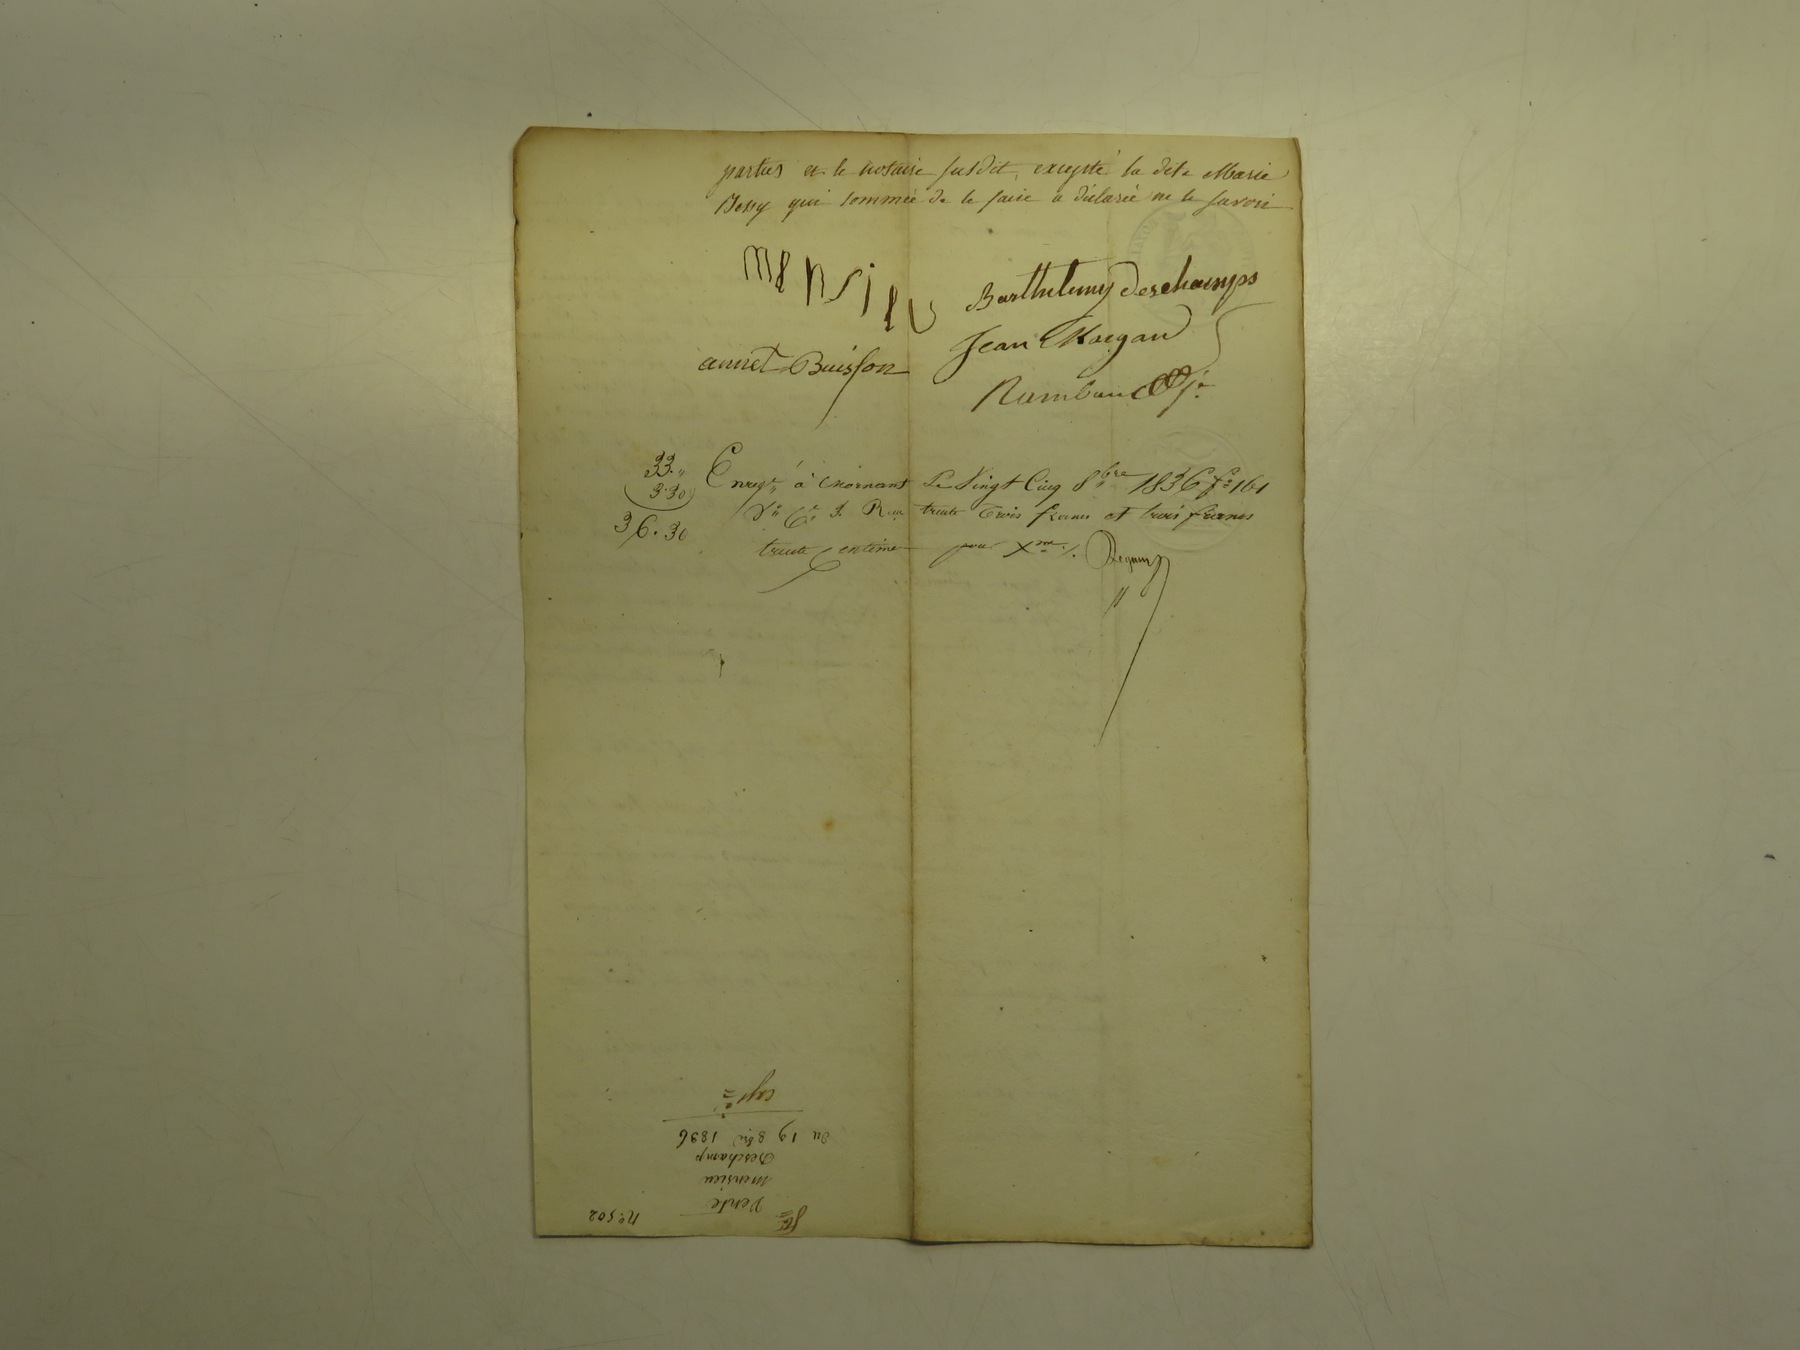 parties et le notaire susdit, excepté la dite Marie
qui sommée de le faire a déclarée ne le savoir
mensieu
Barthelemy Deschamps
Jean
annet Buisson
33."
3.30
36.30
Enregé à Mornant Le Vingt Cinq 8bre 1836 fo 161
Vo Ce Reçu trente trois francs et trois francs
trente centimes pour Xme ./.
No 502
Vente
Mensieu
Deschamp
du 19 8bre 1836
expée